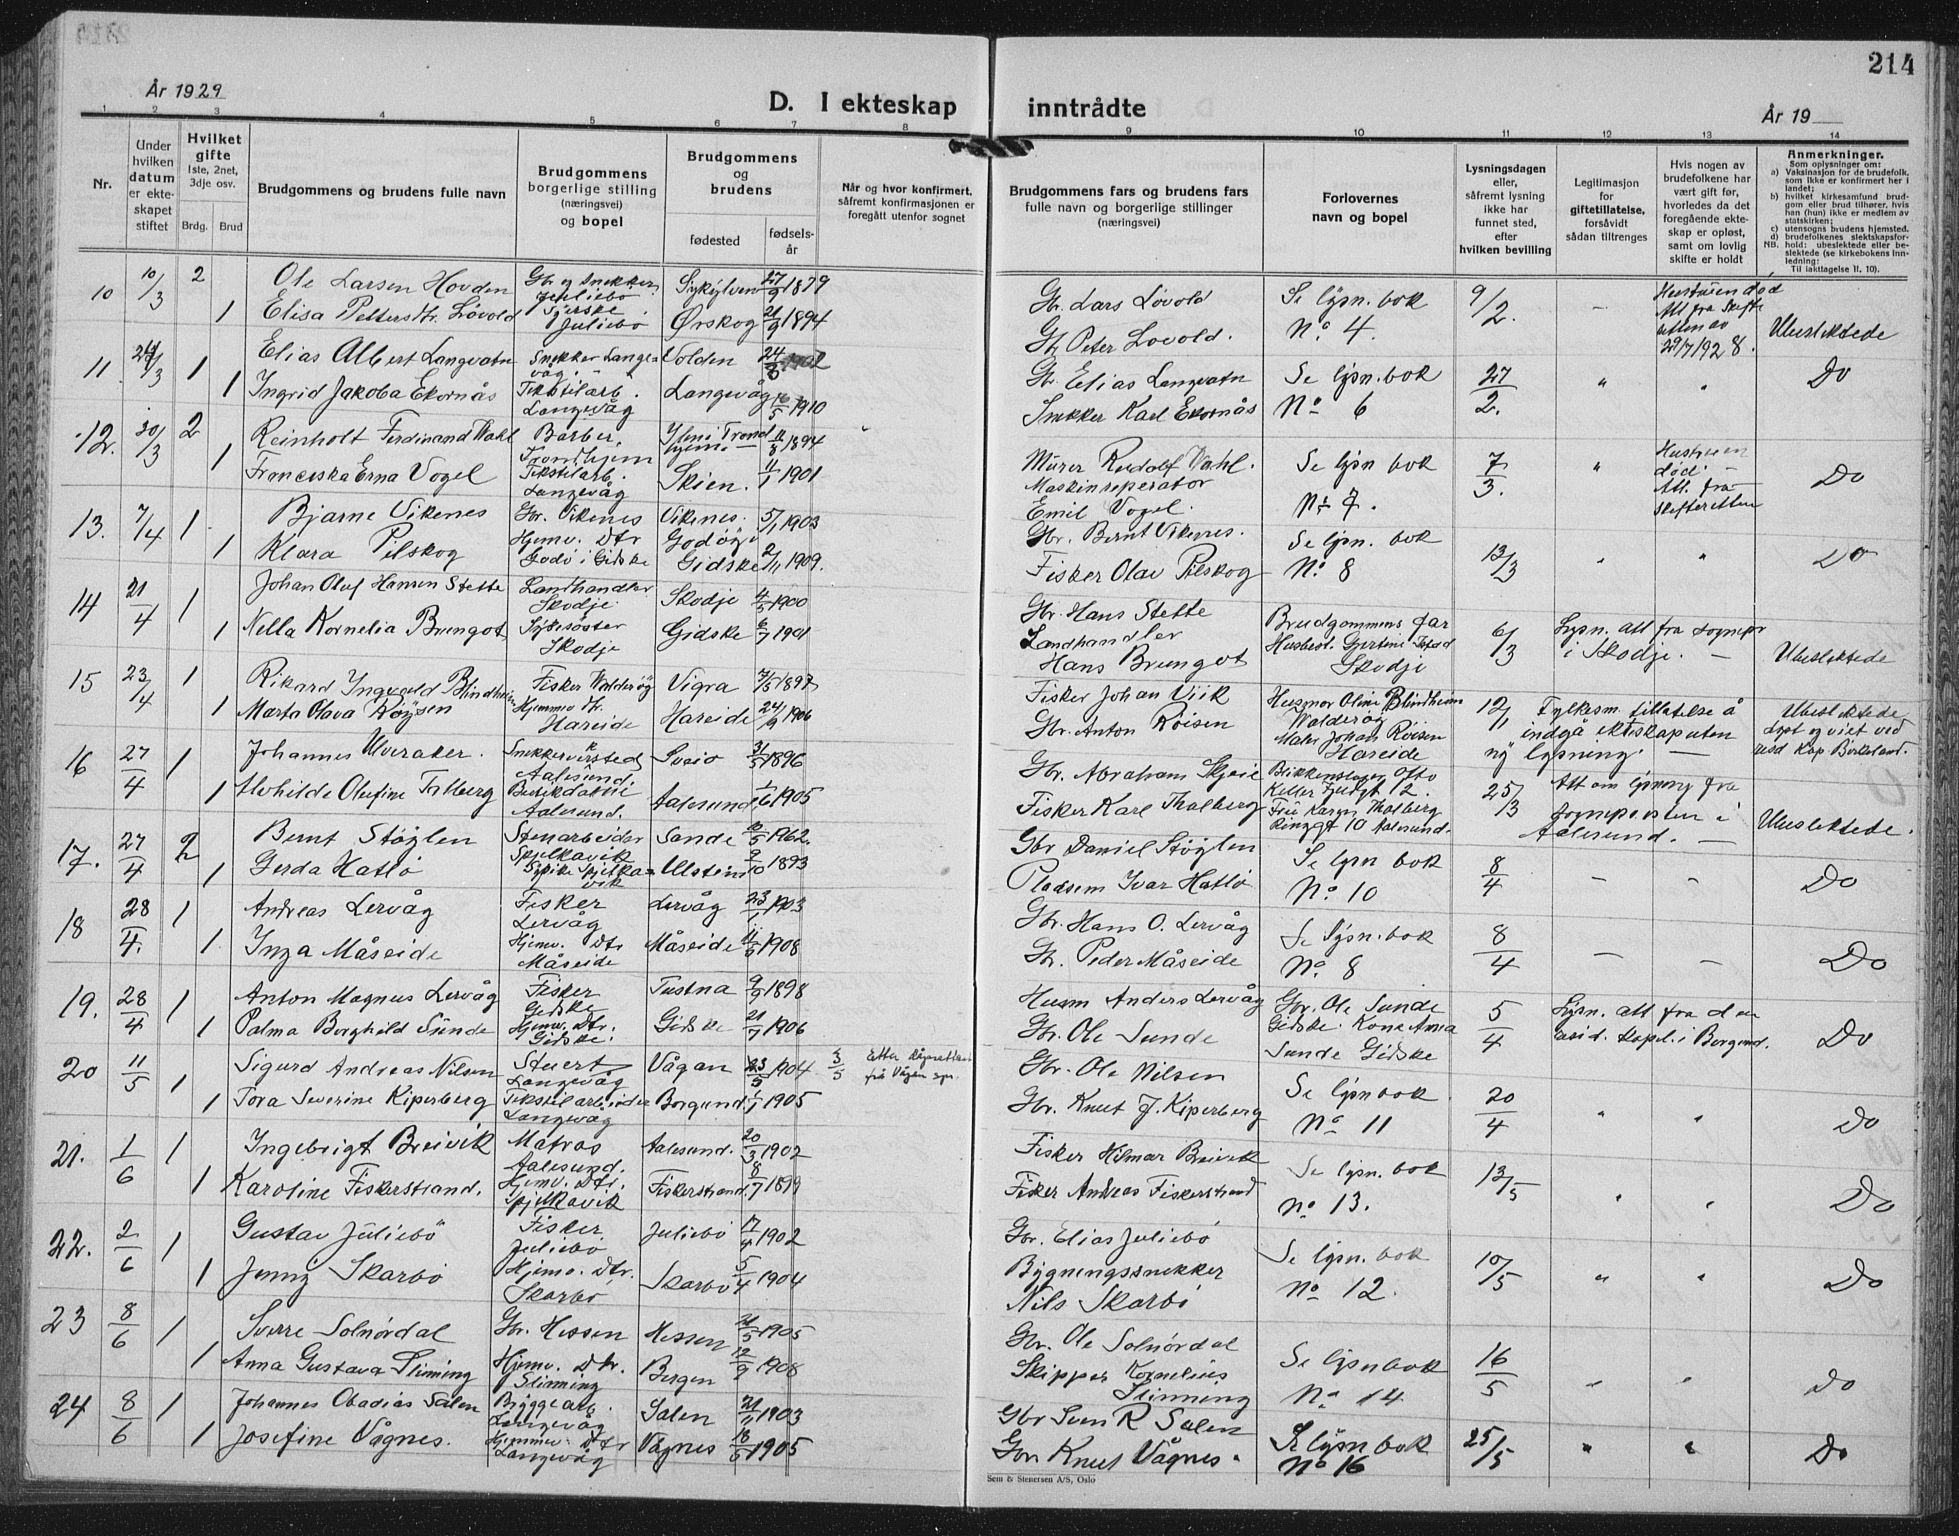 214
År 1929
D. I ekteskap inntrådte
År 19
1 2 3 4 5 6 7 8 9 10 11 12 13 14
Nr.
Under hvilken datum er ekteskapet stiftet
Hvilket gifte
1ste, 2net, 3dje osv.
Brdg. Brud
Brudgommens og brudens fulle navn
Brudgommens borgerlige stilling (næringsvei) og bopel
Brudgommens og brudens
fødested
fødselsår
Når og hvor konfirmert, såfremt konfirmasjonen er foregått utenfor sognet
Brudgommens fars og brudens fars fulle navn og borgerlige stillinger (næringsvei)
Forlovernes navn og bopel
Lysningsdagen eller, såfremt lysning ikke har funnet sted, efter hvilken bevilling
Legitimasjon for giftetillatelse, forsåvidt sådan tiltrenges
Hvis nogen av brudefolkene har vært gift før, hvorledes da det foregående ekteskap er opløst, samt om lovlig skifte er holdt
Anmerkninger.
Som oplysninger om:
a) Vaksinasjon for de brudefolk, som ikke er konfirmert her i landet;
b) hvilket kirkesamfund brudgom eller brud tilhører, hvis han (hun) ikke er medlem av statskirken;
c) utensogns brudens hjemsted.
d) brudefolkenes slektskapsforhold: ubeslektede eller beslektede (se kirkebokens innledning:
NB. Til iakttagelse II. 10).
10 10/3 2 Ole Larsen Hovden Gbr og Snekker Juliebø Sykylven 27/9 1879 Gbr. Lars Løvold Se lysn. bok 9/2. - Hustruen død
1 Elisa Petters dtr. Løvold Syerske Juliebø Ørskog 21/9 1894 Gbr Peter Lovold. No 4. Att fra Skifteretten av 29/7 1928. Ubeslektede
11 1 Elias Albert Langvatn Snekker Langevåg Volden 1902 Gbr Elias Langvatn Se lysn. bok 27/2. " " Do
1 Ingrid Jakoba Ekornås Tekstilarb. Langevåg Langevåg 1910 Snekker Karl Ekornås No 6
12. 30/3 2 Reinholt Ferdinand Wahl Barber, Trondhjem Trondhjem. 11/8 1894 Murer Rudolf Wahl. Se lysn bok 7/3. " Hustruen død.
1 Franciska Erna Vogel Tekstilarb. Langevåg Skien. 11/1 1901 Maskinreperatør Emil Vogel. No 7. Att. fra skifteretten Do
13. 7/4 1 Bjarne Vikenes Gbr. Vikenes Vikenes 5/1 1903 Gbr. Bernt Vikenes. Se lysn. bok 13/3 " " Do
1 Klara Pilskog Hjemv. Dtr Godø i Giske Godøy i Gidske 2/11 1909. Fisker Olav Pilskog No. 8
14 21/4 1 Johan Oluf Hansen Stette Landhandler Skodje Skodje 4/5 1900 Gbr. Hans Stette Brudgommens far 6/3 Lysn. att fra sognepr i Skodje. -
1 Nella Kornelia Brungot Sykesøster Skodje Gidske 6/7 1901 Landhandler Hans Brungot Skodje Ubeslektede
15 23/4 1 Rikard Ingvald Blindheim Fisker Walderøy Vigra 7/5 1897 Fisker Johan Viik Husmor Oline Blindheim Walderøy 12/1 Fylkesm. tillatelse å indgå ekteskap uten ny lysning. - Ubeslektede
1 Marta Olava Røysen Hjemmev. dtr. Hareide Hareide 24/9 1906 Gbr. Anton Røisen Maler Johan Røisen Hareide Lyst og viet ved resid Kap Birkeland.
16 27/4 1 Johannes Utveraker. Snekkerverksted Aalesund. Sveio 31/5 1896 Gbr. Abraham Skjeie Blikkenslager Otto 25/3 Att om lysning fra sognepresten i Aalesund. -
1 Alvhilde Olufine Talberg Butikdame Aalesund. Aalesund 1/6 1905 Fisker Karl Thalberg Fru Karen Thalberg 10 Aalesund. Ubeslektede.
17. 27/4 2 Bernt Støylen Stenarbeider Spjelkavik Sande 1962. Gbr Daniel Støylen Se lysn bok 8/4 - - Do
1 Gerda Hatlø Spjelkavik Ulstein 1893 Pladsem Ivar Hatlø No. 10
18 28/4. 1 Andreas Lervåg Fisker Lervåg Lervåg 23/1 1903 Gbr. Hans O. Lervåg Se lysn. bok 8/4 - - Do
1 Inga Måseide Hjemv. Dtr Måseide Måseide 1908 Gbr. Peder Måseide No. 8
19. 28/4 1 Anton Magnus Lervåg Fisker Gidske Tustna 9/9 1898 Husm Anders Lervåg Gbr. Ole Sunde 5/4 Lysn. att fra den resid. Kapel. i Borgund. Do
1 Palma Borghild Sunde Hjemv. Dtr. Gidske. Gidske 21/7 1906 Gbr. Ole Sunde Gidske. Kone Anna Sunde Gidske
20 11/5 1 Sigurd Andreas Nilsen Stuert Langevåg Vågan 23/5 1904 3/5 Etter fra Vågan spr. Gbr. Ole Nilsen Se lysn bok 20/4 " " Do
1 Tora Severine Kiperberg Tekstilarbeider Langevåg Borgund 1/1 1905 Gbr. Knut J. Kiperberg No 11
21. 1/6 1 Ingebrigt Breivik Matros Aalesund. Aalesund. 20/3 1902 Fisker Hilmar Breivik Se lysn. bok 13/5 " " Do
1 Karoline Fiskerstrand. Hjemv. Dtr. Spjelkavik Fiskerstrand. 8/7 1899 Fisker Andreas Fiskerstrand No 13.
22. 2/6 1 Gustav Juliebø Fisker Juliebø Juliebø 1902 Gbr. Elias Juliebø Se lysn. bok 10/5 " " Do
1 Jenny Skarbø Hjemv. Dtr. Skarbø Skarbø 5/4 1904 Bygningssnekker Nils Skarbø No 12.
23 8/6 1 Sverre Solnørdal Gbr. Hessen Hessen 1905 Gbr. Ole Solnørdal Se lysn bok 16/5 " " Do
1 Anna Gustava Slinning Hjemv. Dtr. Slinning Bergen 12/9 1908 Skipper Kornelius Slinning No 14
24 8/6 1 Johannes Obadias Salen Byggearb. Langevåg Salen 21/11 1903 Gbr Sven R Salen Se lysn bok 25/5 " " Do
1 Josefine Vågnes. Hjemmev. Dtr Langevåg Vågnes 18/6 1905 Gbr Knut Vågnes. No 16
Sem & Stenersen A/S, Oslo